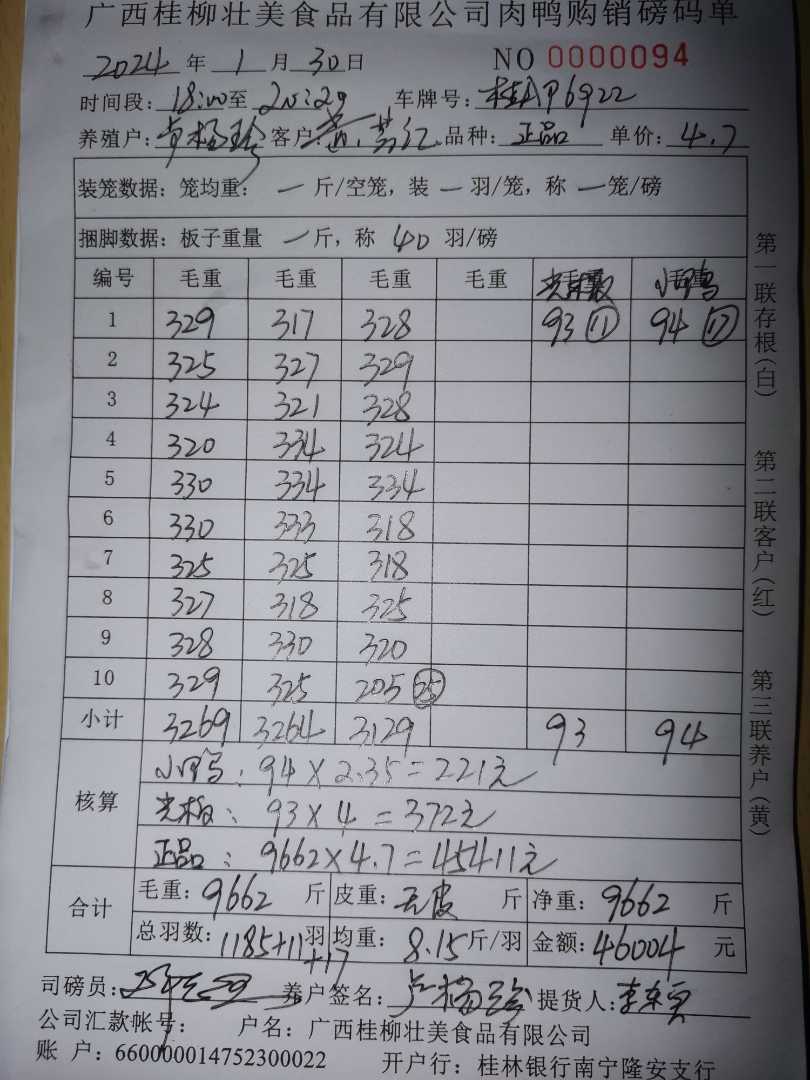 广西桂柳壮美食品有限公司肉鸭购销磅码单
2024 年 1 月 30 日 NO 0000094
时间段: 18:00 至 20:29 车牌号: 桂AP6922
养殖户: 卢杨珍 客户: 黄 红 品种: 正品 单价: 4.7
装笼数据: 笼均重: 一 斤/空笼, 装 一 羽/笼, 称 一 笼/磅
捆脚数据: 板子重量 一 斤, 称 40 羽/磅
编号 毛重 毛重 毛重 毛重 小鸭
1 329 317 328 93 (11) 94 (17)
2 325 327 329
3 324 321 328
4 320 334 324
5 330 334 334
6 330 333 318
7 325 325 318
8 327 318 325
9 328 330 320
10 329 325 205 (25)
小计 3269 3264 3129 93 94
核算 小鸭: 94×2.35=221元
光板: 93×4=372元
正品: 9662×4.7=45411元
合计 毛重: 9662 斤 皮重: 无皮 斤 净重: 9662 斤
总羽数: 1185+11+17 羽 均重: 8.15 斤/羽 金额: 46004 元
司磅员: 养户签名: 卢杨珍 提货人: 李
公司汇款帐号: 户名: 广西桂柳壮美食品有限公司
账 户: 660000014752300022 开户行: 桂林银行南宁隆安支行
第一联存根(白)
第二联客户(红)
第三联养户(黄)